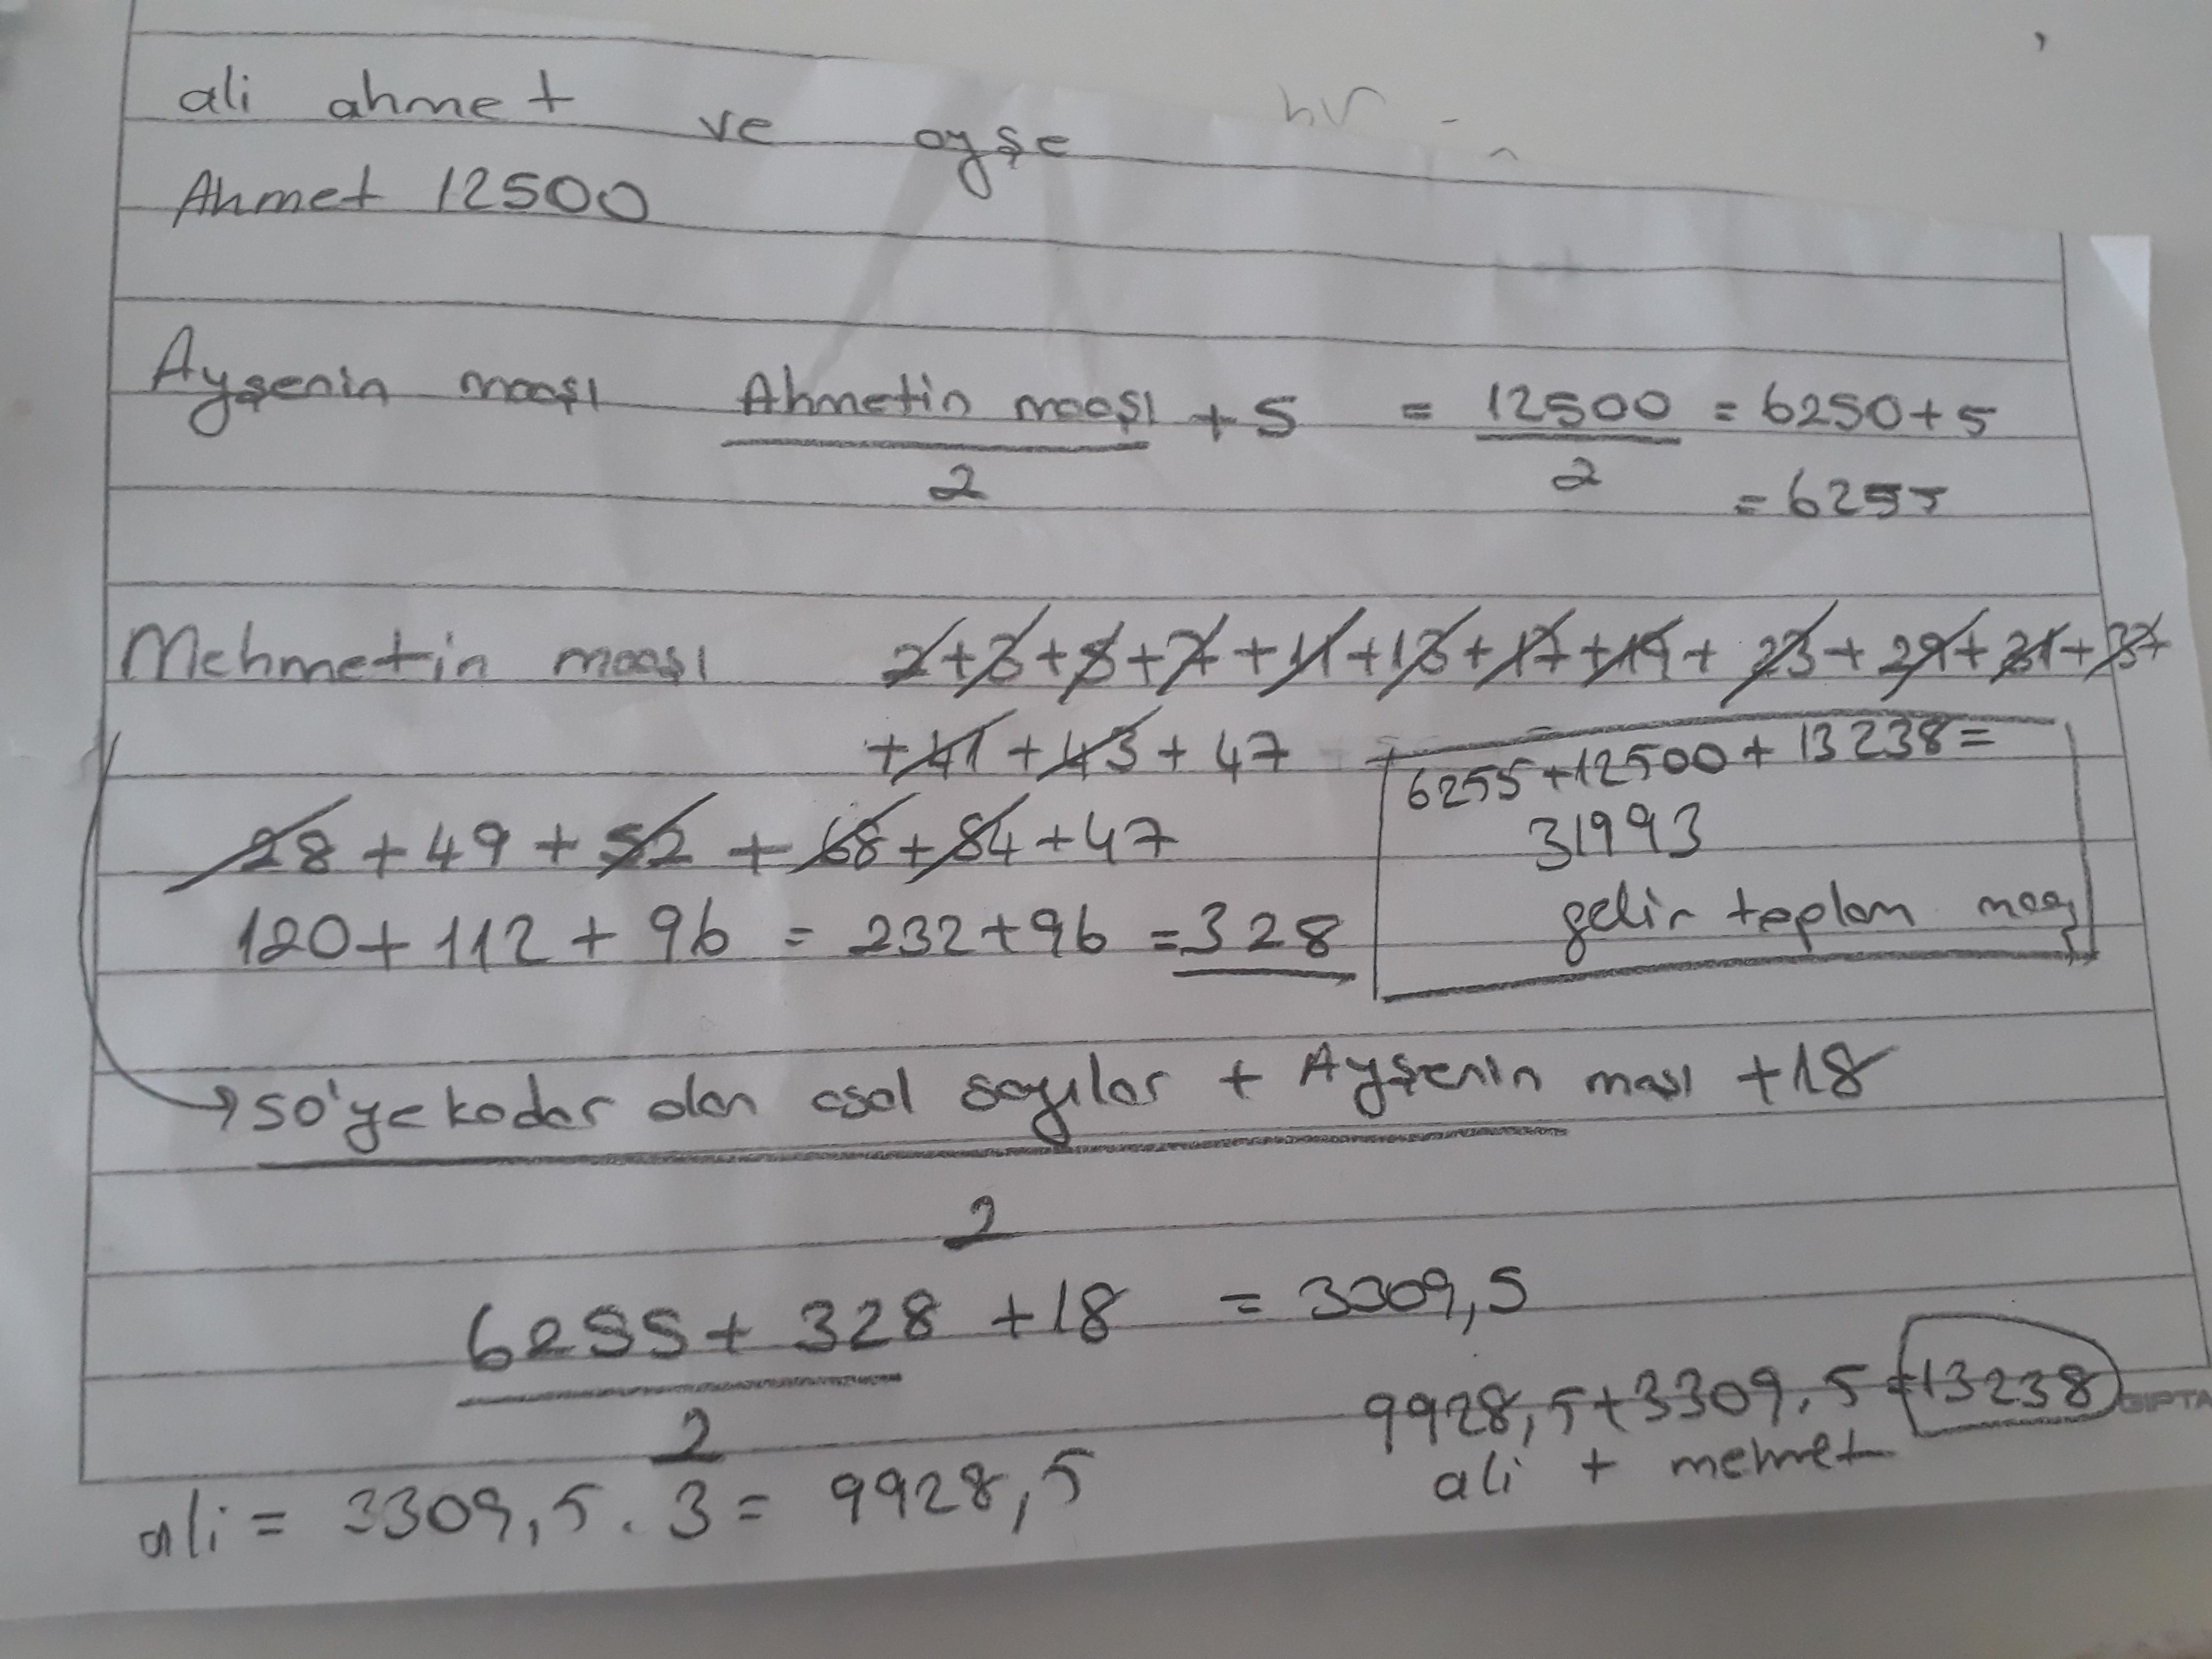 ali ahmet ve ayşe
Ahmet 12500
Ayşenin maaşı Ahmetin maaşı + 5 = 12500 = 6250+5
2 2 = 6255
Mehmetin maaşı 2+3+5+7+11+13+17+19+23+29+31+37
+41+43+47
6255+12500+13238=
31993
gelir toplam maaş
28+49+52+68+84+47
120+112+96 = 232+96 = 328
→ 50'ye kadar olan asal sayılar + Ayşeninması +18
2
6255+328 +18 = 3309,5
2
9928,5+3309,5=13238
ali + mehmet
GIPTA
ali = 3309,5.3 = 9928,5